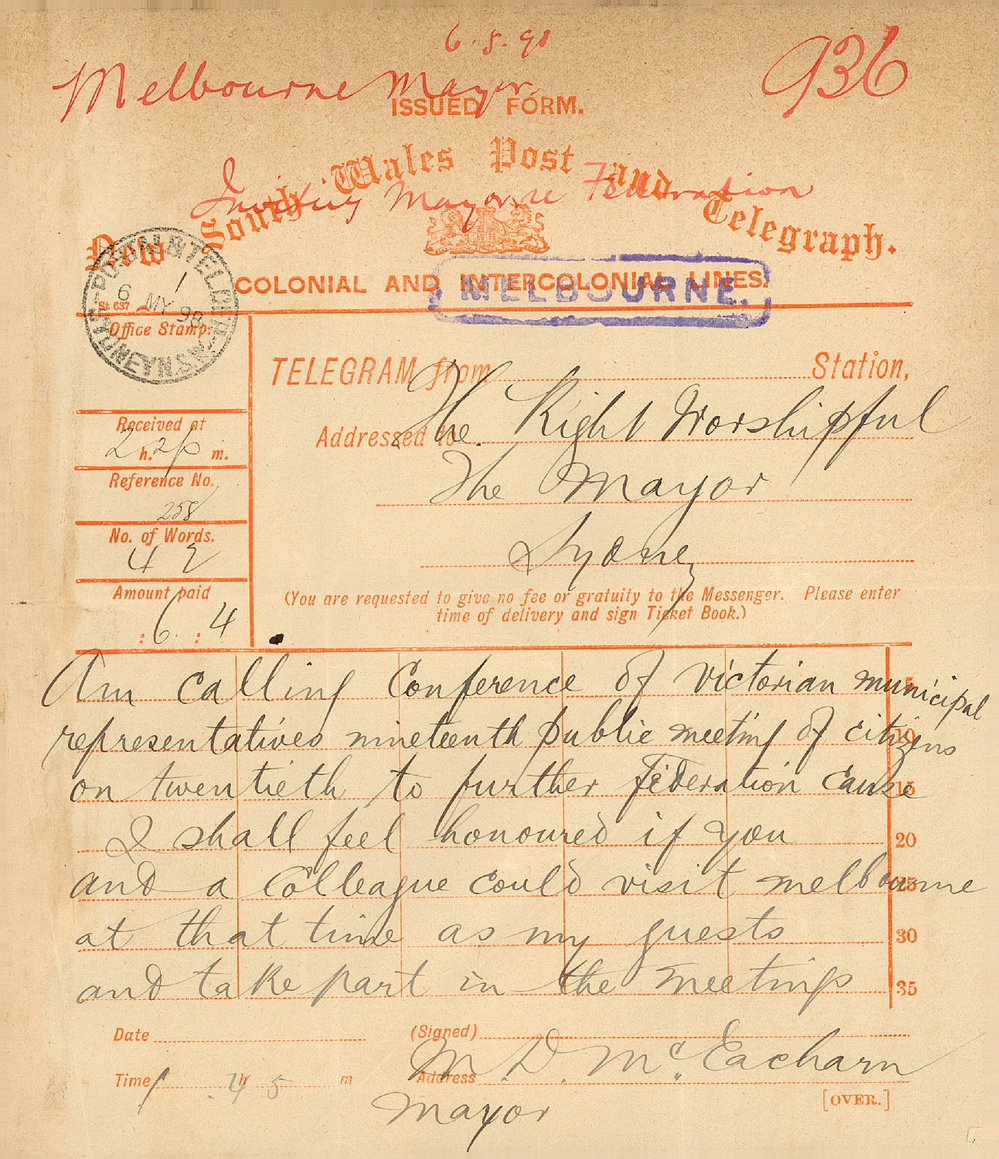 6.5.98
Melbourne Mayor
936
ISSUED FORM.
New South Wales Post and Telegraph.
Inviting Mayor re Federation
COLONIAL AND INTERCOLONIAL LINES.
MELBOURNE.
POSTAL & TELEGR
1
6 MY 98
SYDNEY N.S.W
St 637
Office Stamp:
TELEGRAM from Station,
Addressed to The Right Worshipful
The Mayor
Sydney
Received at
2 h. 2p m.
Reference No.
258
No. of Words.
42
Amount paid
: 6 : 4
(You are requested to give no fee or gratuity to the Messenger. Please enter
time of delivery and sign Ticket Book.)
Am calling Conference of Victorian municipal 5
representatives nineteenth public meeting of citizens 10
on twentieth to further Federation cause 15
I shall feel honoured if you 20
and a Colleague could visit melbourne 25
at that time as my guests 30
and take part in the meetings 35
Date
(Signed) M. D. McEacharn
Time 1 h 45 m
Address
Mayor
[OVER.]